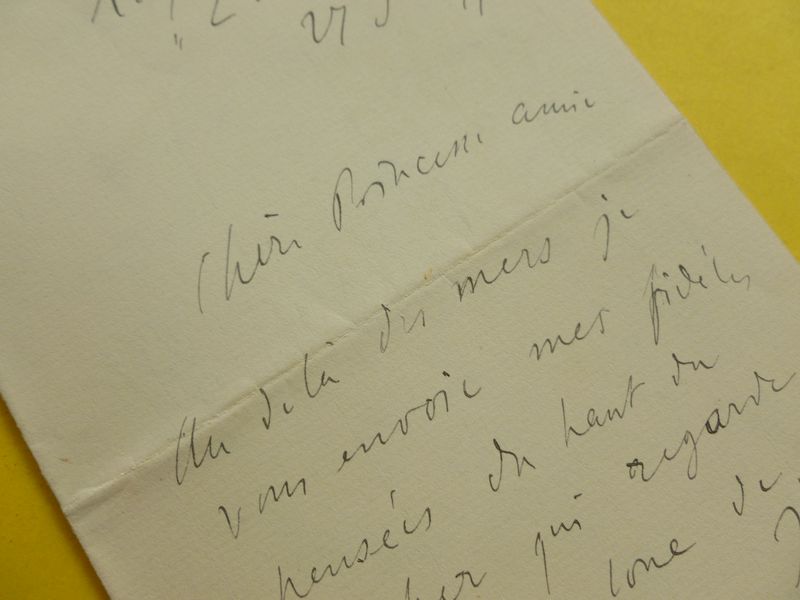 Chère Princesse amie
Au delà des mers je
vous envoie mes fidèles
pensées du haut du
qui regarde
de